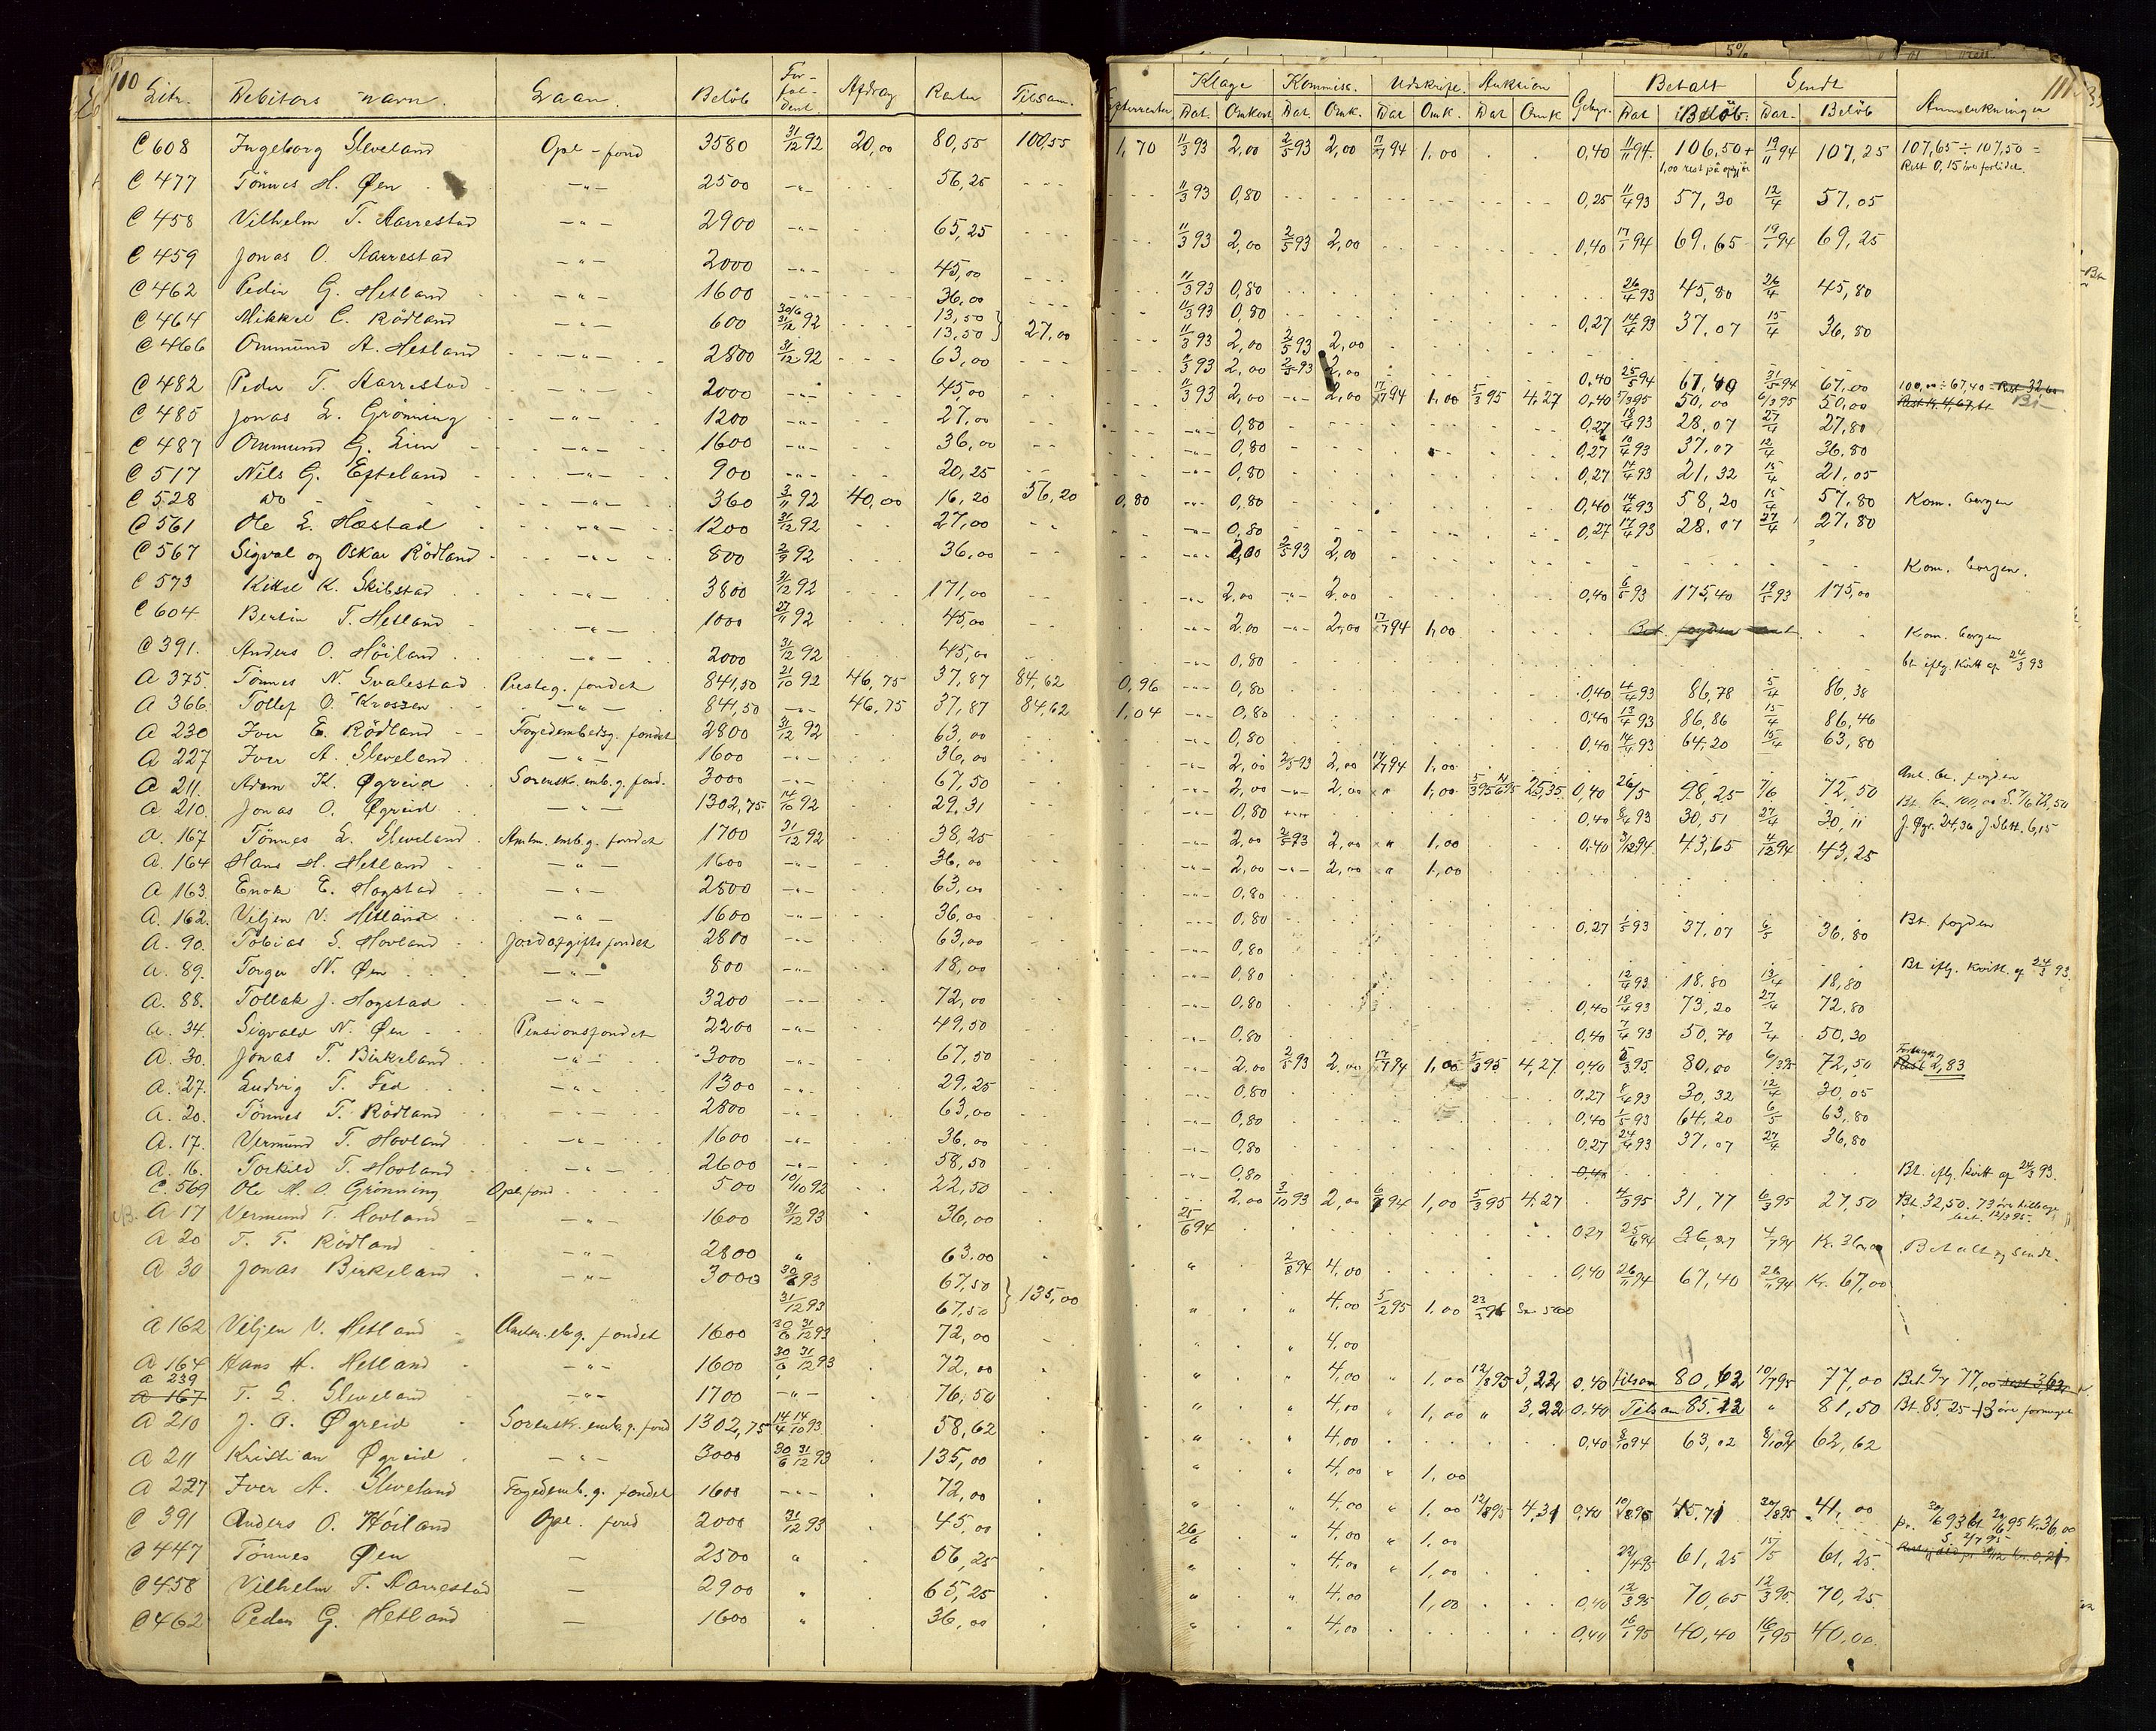 110
Litr. Debitors navn. Laan. Beløb Forfaldent Afdrag Renter Tilsam.
C 608 Ingeborg Sleveland Opl-fond 3580 31/12 92 20,00 80,55 100,55
C 477 Tönnes H. Øen -"- 2500 -"- 56,25
C 458 Vilhelm T. Aarrestad -"- 2900 -"- 65,25
C 459 Jonas O. Aarrestad -"- 2000 -"- 45,00
C 462 Peder G. Hetland -"- 1600 -"- 36,00
C 464 Mikkel C. Rödland -"- 600 30/6 31/12 92 13,50 13,50 } 27,00
C 466 Ommund A. Hetland -"- 2800 31/12 92 63,00
C 482 Peder T. Aarrestad -"- 2000 -"- 45,00
C 485 Jonas L. Grönning -"- 1200 -"- 27,00
C 487 Ommund G. Lien -"- 1600 -"- 36,00
C 517 Nils G. Efteland -"- 900 -"- 20,25
C 528 do -"- 360 3/11 92 40,00 16,20 56,20
C 561 Ole L. Hæstad -"- 1200 31/12 92 27,00
C 567 Sigval og Oskar Rödland -"- 800 2/9 92 36,00
C 573 Kittel K. Skibstad -"- 3800 31/12 92 171,00
C 604 Bertin T. Hetland -"- 1000 27/11 92 45,00
C 391. Anders O. Höiland -"- 2000 31/12 92 45,00
A 375. Tönnes N. Svalestad Presteg. fondet 841,50 21/10 92 46,75 37,87 84,62
A 366. Tollef O. Krossen -"- 841,50 -"- 46,75 37,87 84,62
A 230 Iver E. Rödland Fogedembedsg. fondet 2800 31/12 92 63,00
A 227 Iver A. Sleveland -"- 1600 -"- 36,00
A 211. Adam K. Øgreid Sorensk. emb. g. fond. 3000 -"- 67,50
A 210. Jonas O. Øgreid -"- 1302,75 14/10 92 29,31
A. 167 Tönnes L. Sleveland Amtm. emb. g. fondet 1700 31/12 92 38,25
A. 164 Hans H. Hetland -"- 1600 -"- 36,00
A 163. Enok E. Hogstad -"- 2800 -"- 63,00
A. 162. Viljen V. Hetland -"- 1600 -"- 36,00
A. 90. Tobias S. Hovland Jordafgiftsfondet 2800 -"- 63,00
A. 89. Torger N. Øen -"- 800 -"- 18,00
A. 88. Tollak J. Hogstad -"- 3200 -"- 72,00
A. 34. Sigvald N. Øen Pensionsfondet 2200 -"- 49,50
A. 30. Jonas T. Birkeland -"- 3000 -"- 67,50
A. 27. Ludvig T. Fed -"- 1300 -"- 29,25
A. 20. Tönnes T. Rödland -"- 2800 -"- 63,00
A. 17. Vermund T. Hovland -"- 1600 -"- 36,00
A. 16. Torkild T. Hovland -"- 2600 -"- 58,50
C. 569 Ole M. O. Grönning Opl.fond 500 10/10 92 22,50
A 17 Vermund T. Hovland -"- 1600 31/12 93 36,00
A 20 T. T. Rödland -"- 2800 " 63,00
A 30 Jonas Berkeland -"- 3000 30/6 93 67,50
31/12 93 67,50 } 135,00
A 162 Viljen V. Hetland Amtm. ebg. fondet 1600 30/6 31/12 93 72,00
A 164 Hans H. Hetland -"- 1600 30/6 31/12 93 72,00
a 239
A 167 T. L. Sleveland -"- 1700 -"- 76,50
A 210 J. O. Øgreid Sorensk. emb. g. fond 1302,75 14/4 14/10 93 58,62
A 211 Kristian Øgreid -"- 3000 30/6 31/12 93 135,00
A 227 Iver A. Sleveland Fogedemb. g. fondet 1600 -"- 72,00
C 391 Anders O. Höiland Opl. fond 2000 31/12 93 45,00
C 447 Tönnes Øen — 2500 " 56,25
C 458 Vilhelm T. Aarrestad — 2900 " 65,25
C 462 Peder G. Hetland — 1600 " 36,00
111
Klage Kommiss. Udskrift. Auktion Betalt Sendt
Efterrenter Dat. Omkost Dat. Omk. Dat Omk. Dat Omk Gebyr. Dat Beløb. Dat. Beløb Anmerkninger
1,70 11/3 93 2,00 2/5 93 2,00 17/7 94 1,00 0,40 11/11 94. 106,50+ 19/11 94 107,25 107,65 ÷ 107,50 =
1,00 rest på opgjör Rest 0,15 øre forlidt.
11/3 93 0,80 0,25 11/4 93 57,30 12/4 57,05
11/3 93 2,00 2/5 93 2,00 0,40 17/1 94 69,65 19/1 94 69,25
11/3 93 0,80 26/4 93 45,80 26/4 45,80
11/3 93 0,80 0,27 14/4 93 37,07 15/4 36,80
11/3 93 2,00 2/5 93 2,00
11/3 93 2,00 2/5 93 2,00 0,40 25/5 94 67,40 31/5 94 67,00 100,00 ÷ 67,40 = Rest 32,60
11/3 93 2,00 -"- 2,00 17/7 94 1,00 5/3 95 4,27 0,40 5/3 95 50,00 6/3 95 50,00
-"- 0,80 0,27 18/4 93 28,07 27/4 27,80
-"- 0,80 0,27 10/4 93 37,07 12/4 36,80
-"- 0,80 0,27 14/4 93 21,32 15/4 21,05
0,80 -"- 0,80 0,40 14/4 93 58,20 15/4 57,80 Kom. borgen
-"- 0,80 0,27 17/4 93 28,07 27/4 27,80
-"- 2,00 2/5 93 2,00 Kom. borgen.
-"- 2,00 -"- 2,00 0,40 6/5 93 175,40 19/5 93 175,00
-"- 2,00 -"- 2,00 17/7 94 1,00 Bet. fogden Kom. borgen
-"- 0,80 bt. iflg. Kvitt. af 24/3 93
0,96 -"- 0,80 0,40 4/4 93 86,78 5/4 86,38
1,04 -"- 0,80 0,40 13/4 93 86,86 15/4 86,46
-"- 0,80 0,40 14/4 93 64,20 15/4 63,80
-"- 2,00 2/5 93 2,00 17/7 94 1,00
-"- 2,00 -"- 2,00 " 1,00 25,35 0,40 26/5 98,25 7/6 72,50
-"- 0,80 0,40 8/4 93 30,51 27/4 30,11 J. Øgr. 24,36 J. Slett. 6,15
-"- 2,00 2/5 93 2,00 " 1,00 0,40 3/12 94 43,65 4/12 94 43,25
-"- 2,00 -"- 2,00 " 1,00
-"- 0,80
-"- 0,80 0,27 1/5 93 37,07 6/5 36,80 Bt. fogden
-"- 0,80
-"- 0,80 12/4 93 18,80 13/4 18,80 Bt. iflg. Kvitt. af 24/3 93.
-"- 0,80 0,40 18/4 93 73,20 27/4 72,80
-"- 0,80 0,40 7/4 93 50,70 7/4 50,30
-"- 2,00 2/5 93 2,00 17/7 94 1,00 5/3 95 4,27 0,40 5/3 95 80,00 6/3 95 72,50 2,83
-"- 0,80 0,27 8/4 93 30,32 12/4 30,05
-"- 0,80 0,40 1/5 93 64,20 6/5 63,80
-"- 0,80 0,27 24/4 93 37,07 27/4 36,80
-"- 0,80 0,40 Bt. iflg. Kvitt. af 24/3 93.
2,00 3/10 93 2,00 94 1,00 5/3 95 4,27 4/3 95 31,77 6/3 95 27,50 Bt. 32,50. 73 øre tilbage
25/6 94 0,27 25/6 94 36,27 4/7 94 Kr. 36,00 Betalt og sendt.
" 2/8 94 4,00 0,40 26/11 94 67,40 26/11 94 Kr. 67,00
" " 4,00 5/2 95 1,00
" 4,00
" " 4,00 " 1,00 12/8 95 3,22 0,40 tilsam 80,62 10/7 95 77,00 Bet. 77,00
" " 4,00 " 1,00 " 3,22 0,40 Tilsam 85,12 " 81,50 Bt. 85,25
" " 4,00 0,40 8/10 94 63,02 8/10 94 62,62
" " 4,00 " 1,00
" " 4,00 " 1,00 12/8 95 4,31 0,40 45,71 41,00
26/6 " 4,00 " 1,00
" " 4,00 " 1,00 61,25 15/5 61,25
" " 4,00 1,00 0,40 12/3 95 70,65 12/3 95. 70,25
" " 4,00 0,40 16/1 95 40,40 16/1 95 40,00